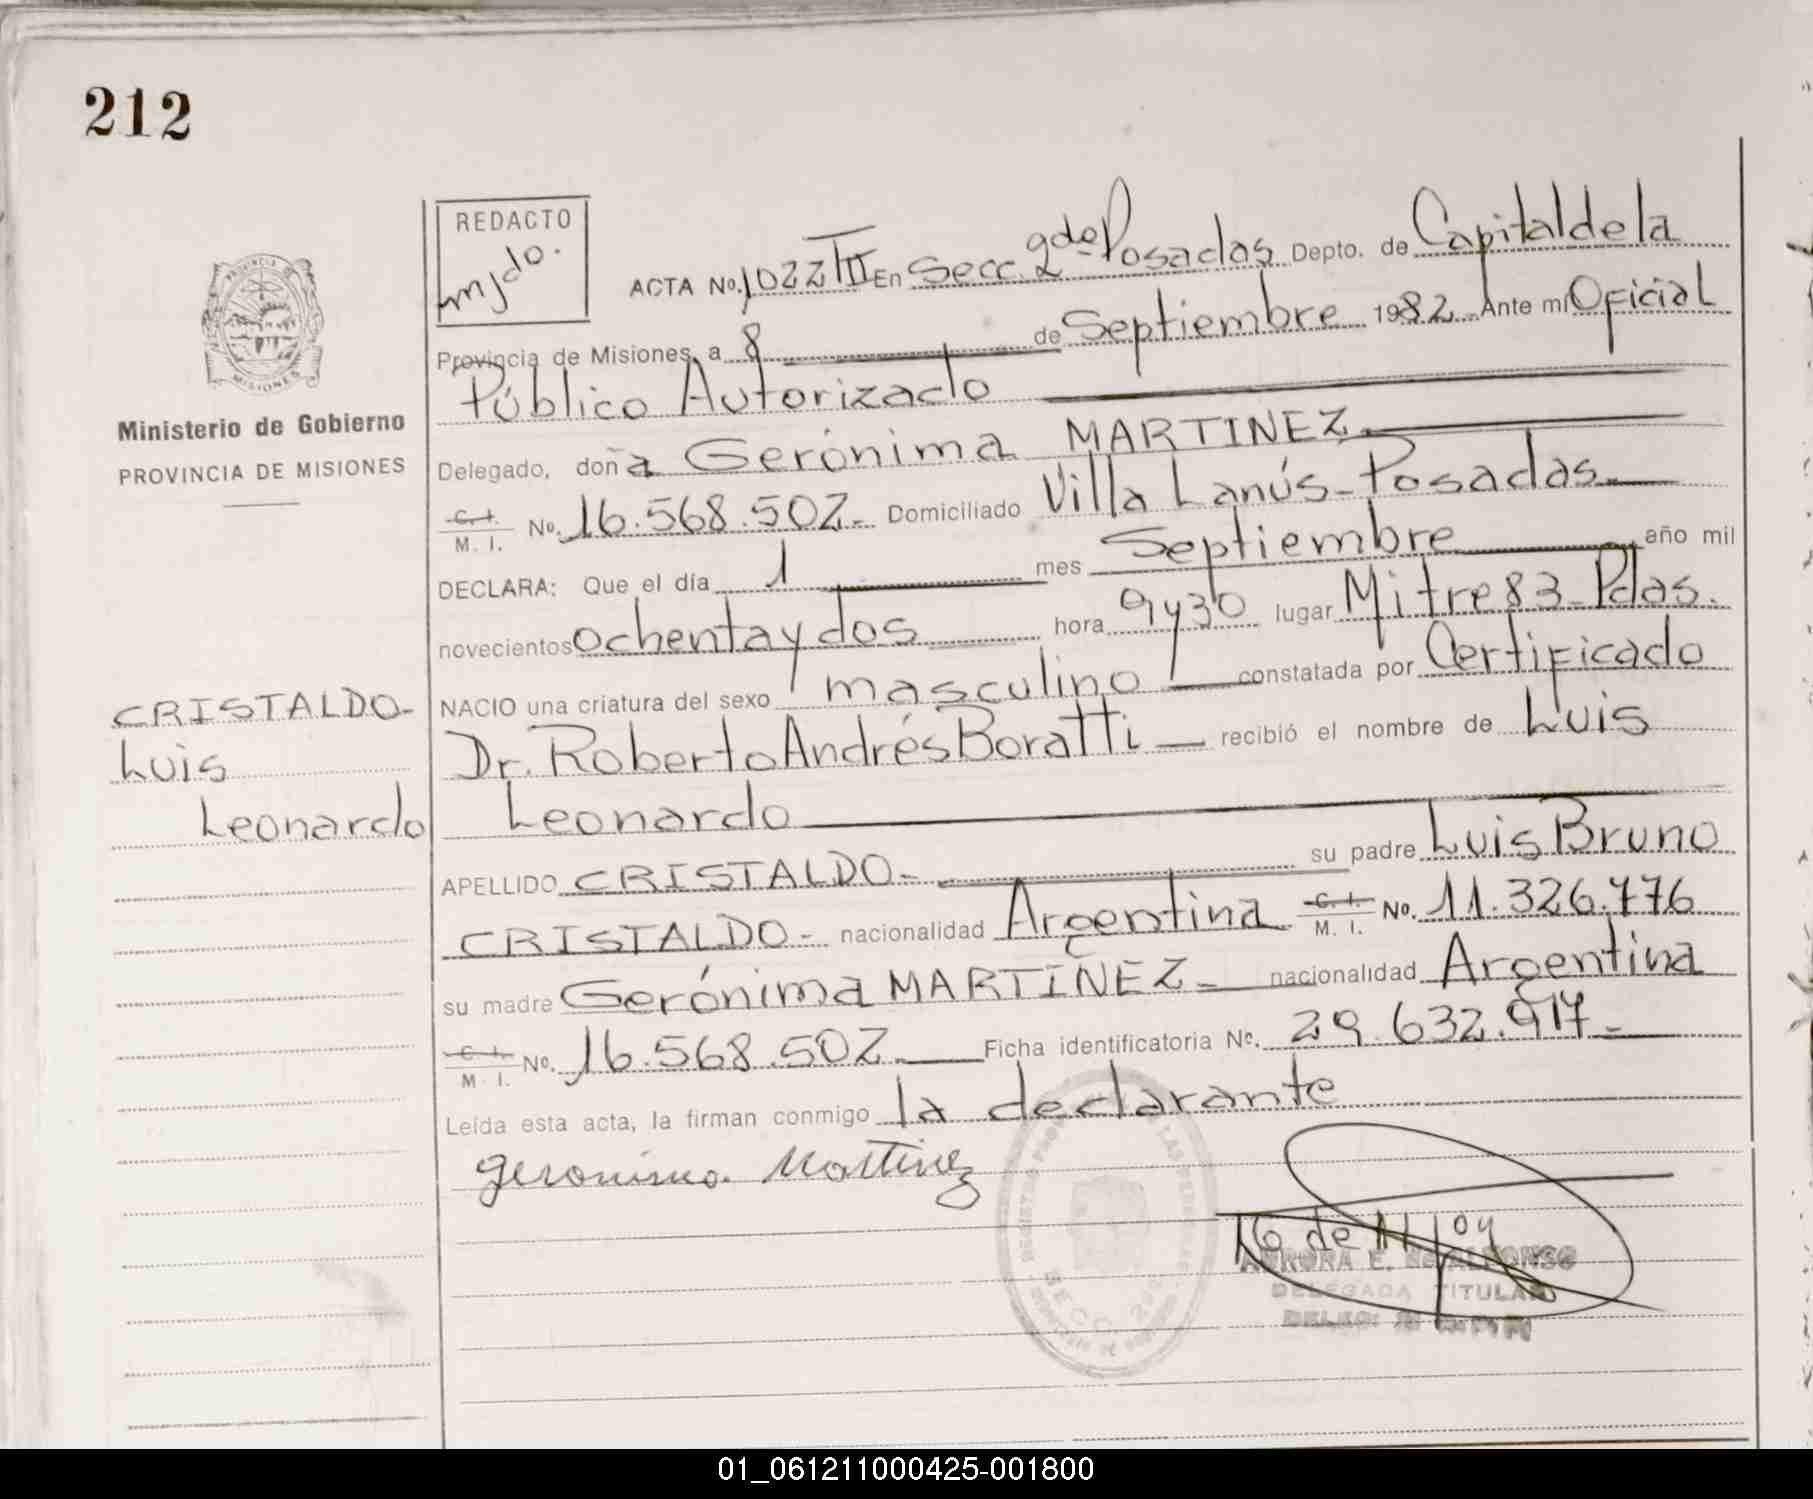 212
REDACTO
mjdo.
ACTA No. 1022 TIII En Secc. 2da de Posadas Depto. de Capital de la
Provincia de Misiones, a 8 de Septiembre 1982 Ante mi Oficial
Público Autorizado
Ministerio de Gobierno
PROVINCIA DE MISIONES
Delegado, doña Gerónima MARTINEZ
C. I. M. I. No. 16.568.502- Domiciliado Villa Lanús - Posadas
DECLARA: Que el día 1 mes Septiembre año mil
novecientos ochenta y dos hora 9 y 30 lugar Mitre 83 - Pdas.
NACIO una criatura del sexo masculino constatada por Certificado
Dr. Roberto Andrés Boratti recibió el nombre de Luis
Leonardo
CRISTALDO-
Luis
Leonardo
APELLIDO CRISTALDO- su padre Luis Bruno
CRISTALDO- nacionalidad Argentina C. I. M. I. No. 11.326.776
su madre Gerónima MARTÍNEZ- nacionalidad Argentina
C. I. M. I. No. 16.568.502 Ficha identificatoria Nº. 29.632.917-
Leída esta acta, la firman conmigo la declarante
Geronima Martinez
DELEGADA TITULAR
01_061211000425-001800